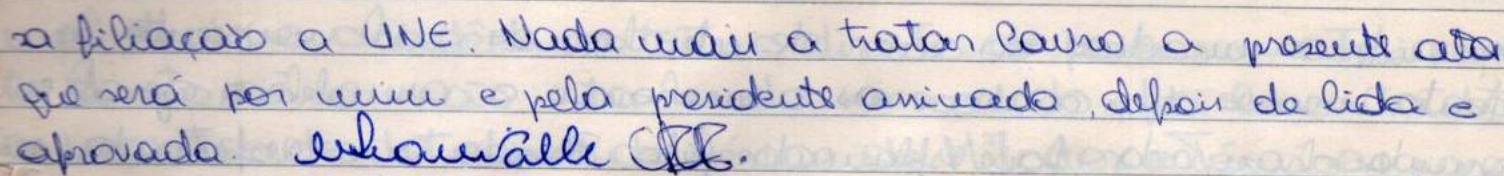 a filiação a UNE. Nada mais a tratar lavro a presente ata
que será por mim e pela presidente assinada, depois de lida e
aprovada.